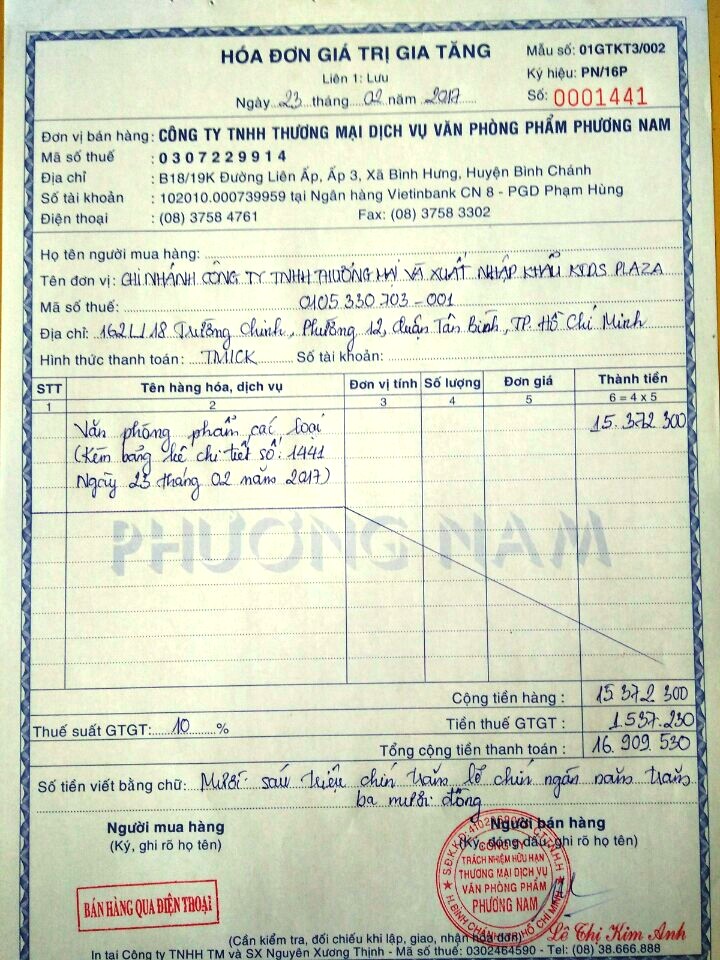 HÓA ĐƠN GIÁ TRỊ GIA TĂNG
Mẫu số: 01GTKT3/002
Liên 1: Lưu
Ký hiệu: PN/16P
Ngày 23 tháng 02 năm 2017
Số: 0001441
Đơn vị bán hàng: CÔNG TY TNHH THƯƠNG MẠI DỊCH VỤ VĂN PHÒNG PHẨM PHƯƠNG NAM
Mã số thuế : 0307229914
Địa chỉ : B18/19K Đường Liên Ấp, Ấp 3, Xã Bình Hưng, Huyện Bình Chánh
Số tài khoản : 102010.000739959 tại Ngân hàng Vietinbank CN 8 - PGD Phạm Hùng
Điện thoại : (08) 3758 4761 Fax: (08) 3758 3302
Họ tên người mua hàng:
Tên đơn vị: CHI NHÁNH CÔNG TY TNHH THƯƠNG MẠI VÀ XUẤT NHẬP KHẨU KIDS PLAZA
Mã số thuế: 0105330703-001
Địa chỉ: 162L/18 Trường Chinh, Phường 12, Quận Tân Bình, TP. Hồ Chí Minh
Hình thức thanh toán: TM/CK Số tài khoản:
STT Tên hàng hóa, dịch vụ Đơn vị tính Số lượng Đơn giá Thành tiền
1 2 3 4 5 6 = 4 x 5
Văn phòng phẩm các loại 15.372.300
(Kèm bảng kê chi tiết số: 1441
Ngày 23 tháng 02 năm 2017)
PHƯƠNG NAM
Cộng tiền hàng : 15.372.300
Thuế suất GTGT: 10 % Tiền thuế GTGT : 1.537.230
Tổng cộng tiền thanh toán : 16.909.530
Số tiền viết bằng chữ: Mười sáu triệu chín trăm lẻ chín ngàn năm trăm
ba mươi đồng
Người mua hàng
(Ký, ghi rõ họ tên)
Người bán hàng
(Ký, đóng dấu, ghi rõ họ tên)
CÔNG TY
TRÁCH NHIỆM HỮU HẠN
THƯƠNG MẠI DỊCH VỤ
VĂN PHÒNG PHẨM
PHƯƠNG NAM
BÁN HÀNG QUA ĐIỆN THOẠI
Lê Thị Kim Anh
(Cần kiểm tra, đối chiếu khi lập, giao, nhận hóa đơn)
In tại Công ty TNHH TM và SX Nguyên Xương Thịnh - Mã số thuế: 0302464590 - Tel: (08) 38.666.888